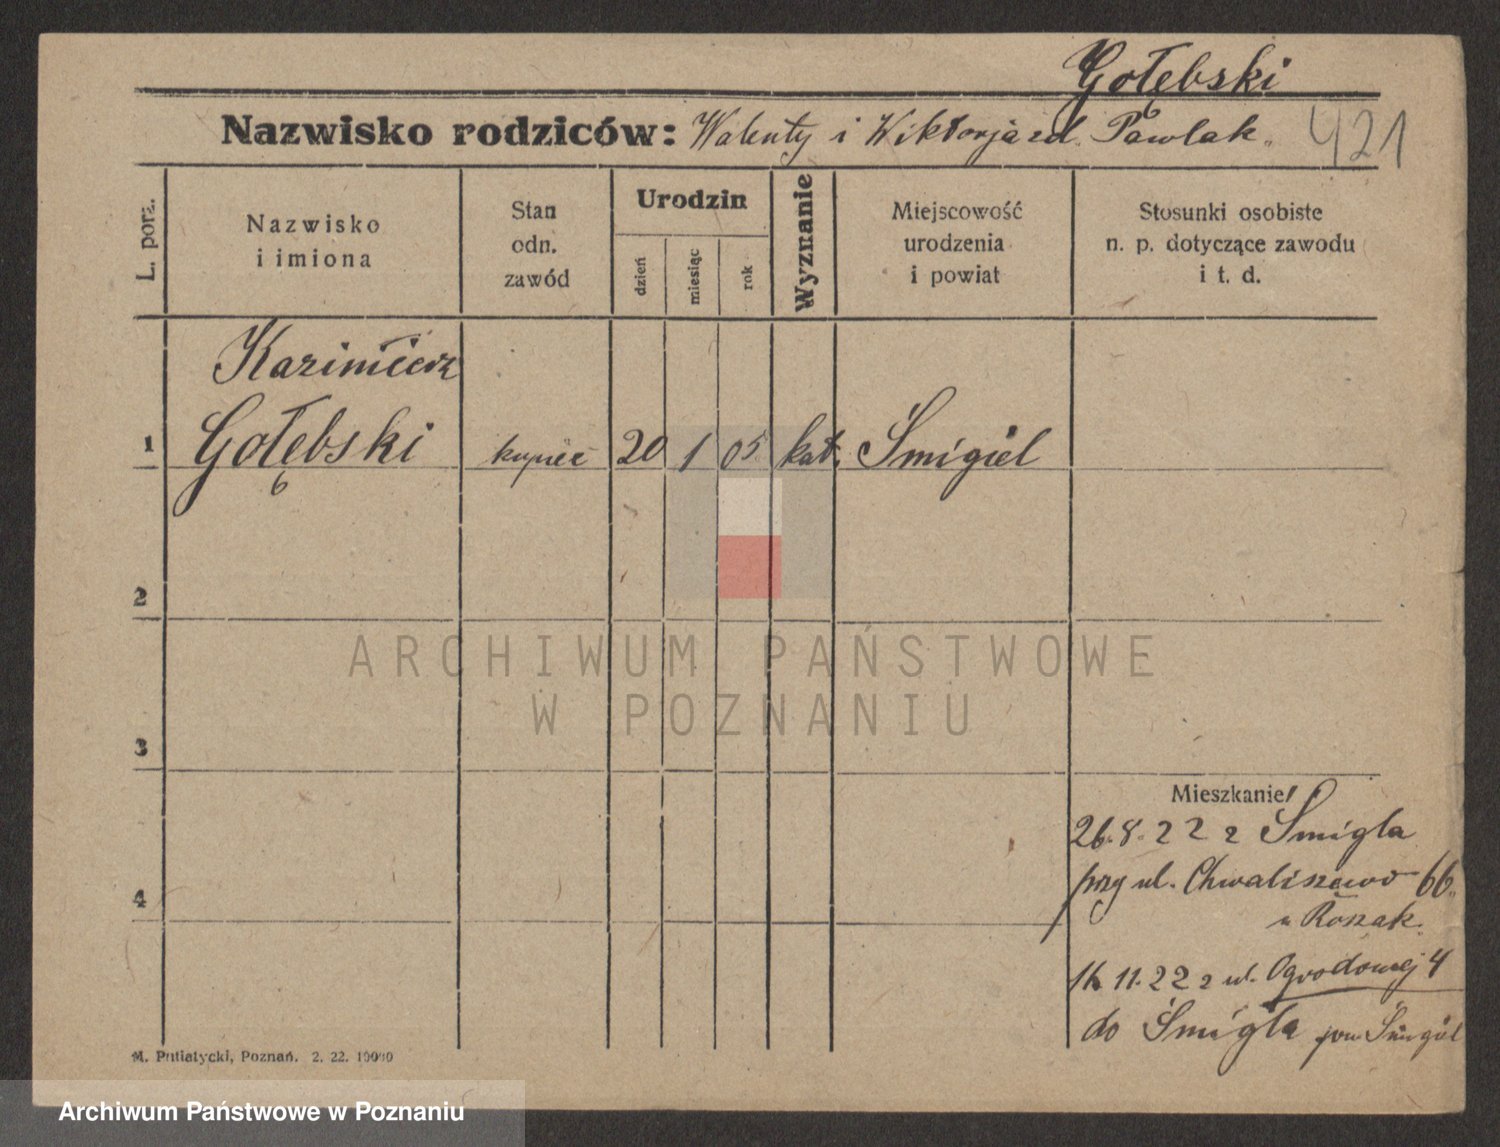 Gołębski
Nazwisko rodziców: Walenty i Wiktorja zd. Pawlak.
421
L. porz.
Nazwisko
i imiona
Stan
odn.
zawód
Urodzin
dzień
miesiąc
rok
Wyznanie
Miejscowość
urodzenia
i powiat
Stosunki osobiste
n. p. dotyczące zawodu
i t. d.
Kazimierz
1 Gołębski kupiec 20 1 05 kat. Śmigiel
2
ARCHIWUM PAŃSTWOWE
W POZNANIU
3
Mieszkanie
26.8.22 z Śmigla
przy ul. Chwaliszewo 66.
u Roszak.
4
11.22 z ul. Ogrodowej 4
do Śmigla pow. Śmigiel
M. Putiatycki, Poznań. 2. 22. 10000
Archiwum Państwowe w Poznaniu